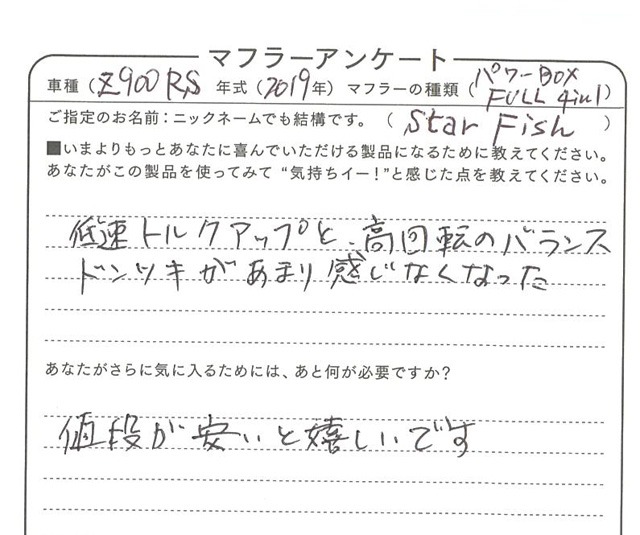 マフラーアンケート
車種（Z900RS 年式（2019年）マフラーの種類（パワーBOX FULL 4in1）
ご指定のお名前：ニックネームでも結構です。（Star Fish）
■いまよりもっとあなたに喜んでいただける製品になるために教えてください。
あなたがこの製品を使ってみて“気持ちイー！”と感じた点を教えてください。
低速トルクアップと、高回転のバランス
ドンツキがあまり感じなくなった
あなたがさらに気に入るためには、あと何が必要ですか？
値段が安いと嬉しいです